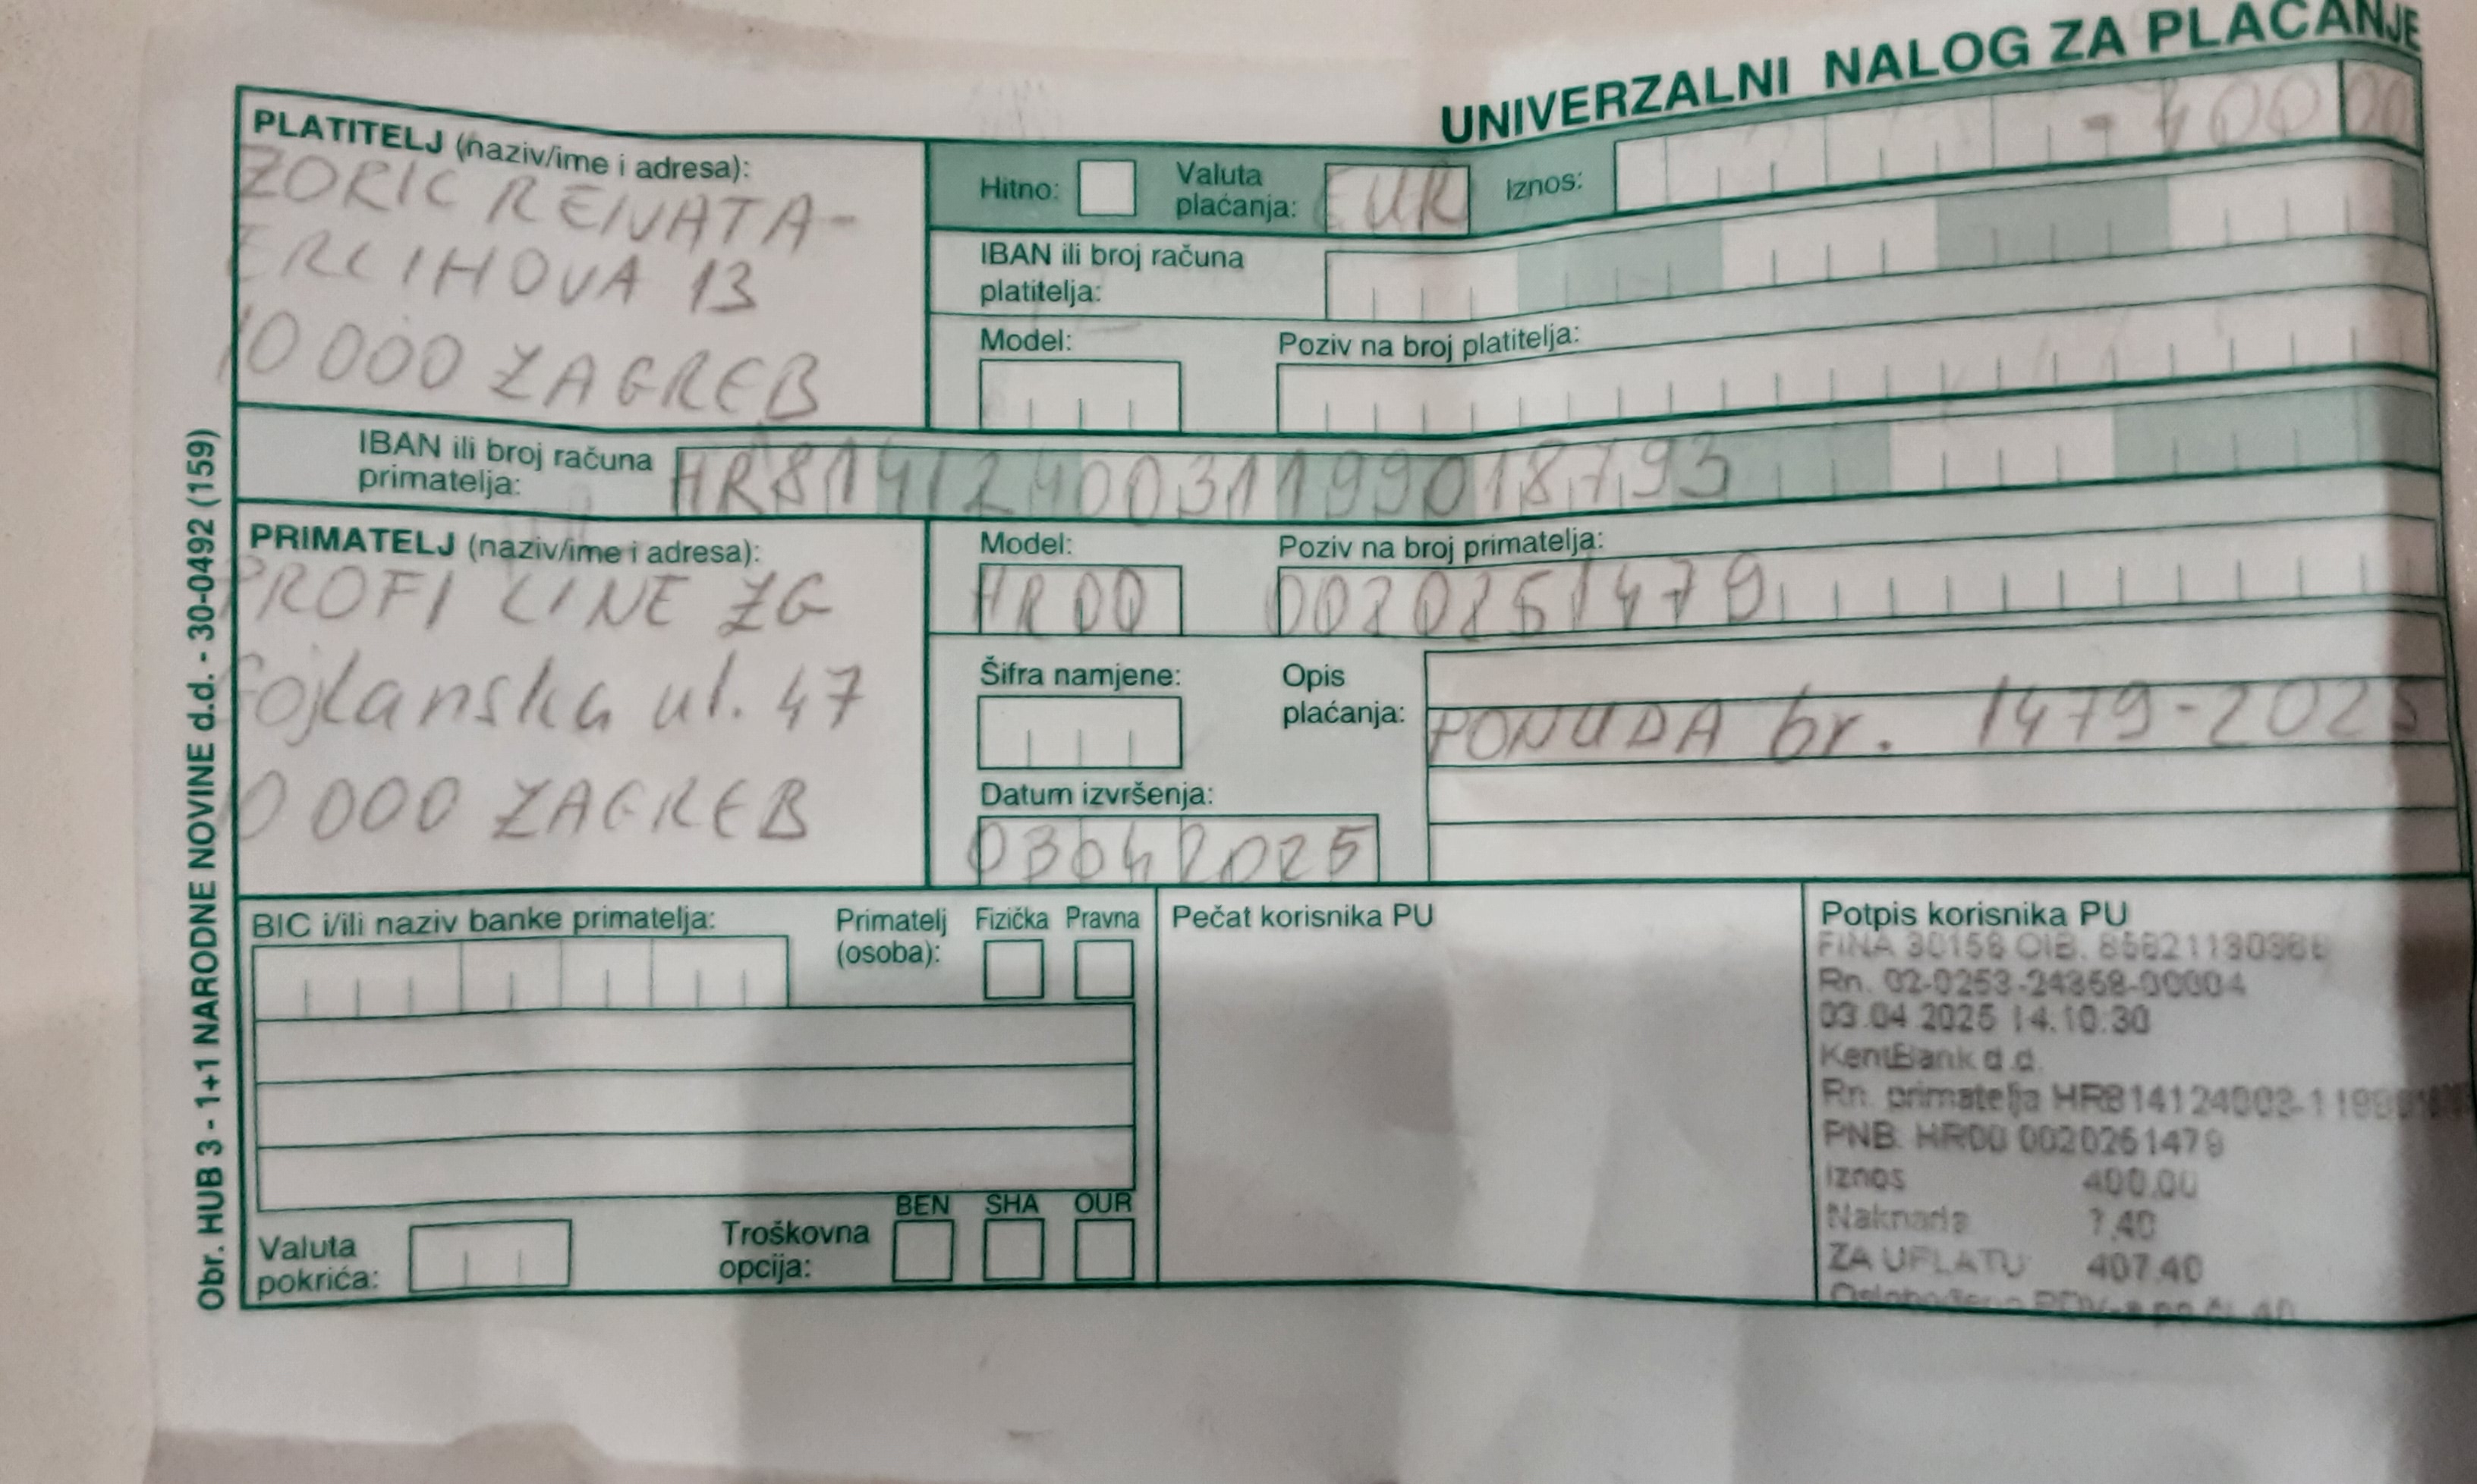 UNIVERZALNI NALOG ZA PLAĆANJE
PLATITELJ (naziv/ime i adresa):
ZORIC RENATA-
ERLIHOVA 13
10000 ZAGREB
Hitno:
Valuta plaćanja: EUR
Iznos: =400 00
IBAN ili broj računa platitelja:
Model:
Poziv na broj platitelja:
IBAN ili broj računa primatelja: HR8141240031199018793
PRIMATELJ (naziv/ime i adresa):
PROFI LINE ZG
10000 ZAGREB
Model: HR00
Poziv na broj primatelja: 0020251479
Šifra namjene:
Opis plaćanja: PONUDA br. 1479-2025
Datum izvršenja: 03042025
BIC i/ili naziv banke primatelja:
Primatelj (osoba): Fizička Pravna
Valuta pokrića:
Troškovna opcija: BEN SHA OUR
Pečat korisnika PU
Potpis korisnika PU
FINA 30158 OIB.
Rn. 02-0253-24368-00004
03.04.2025 14:10:30
KentBank d.d.
Rn. primatelja
PNB. HR00
Iznos 400,00
Naknada 7,40
ZA UPLATU: 407,40
Obr. HUB 3 - 1+1 NARODNE NOVINE d.d. - 30-0492 (159)